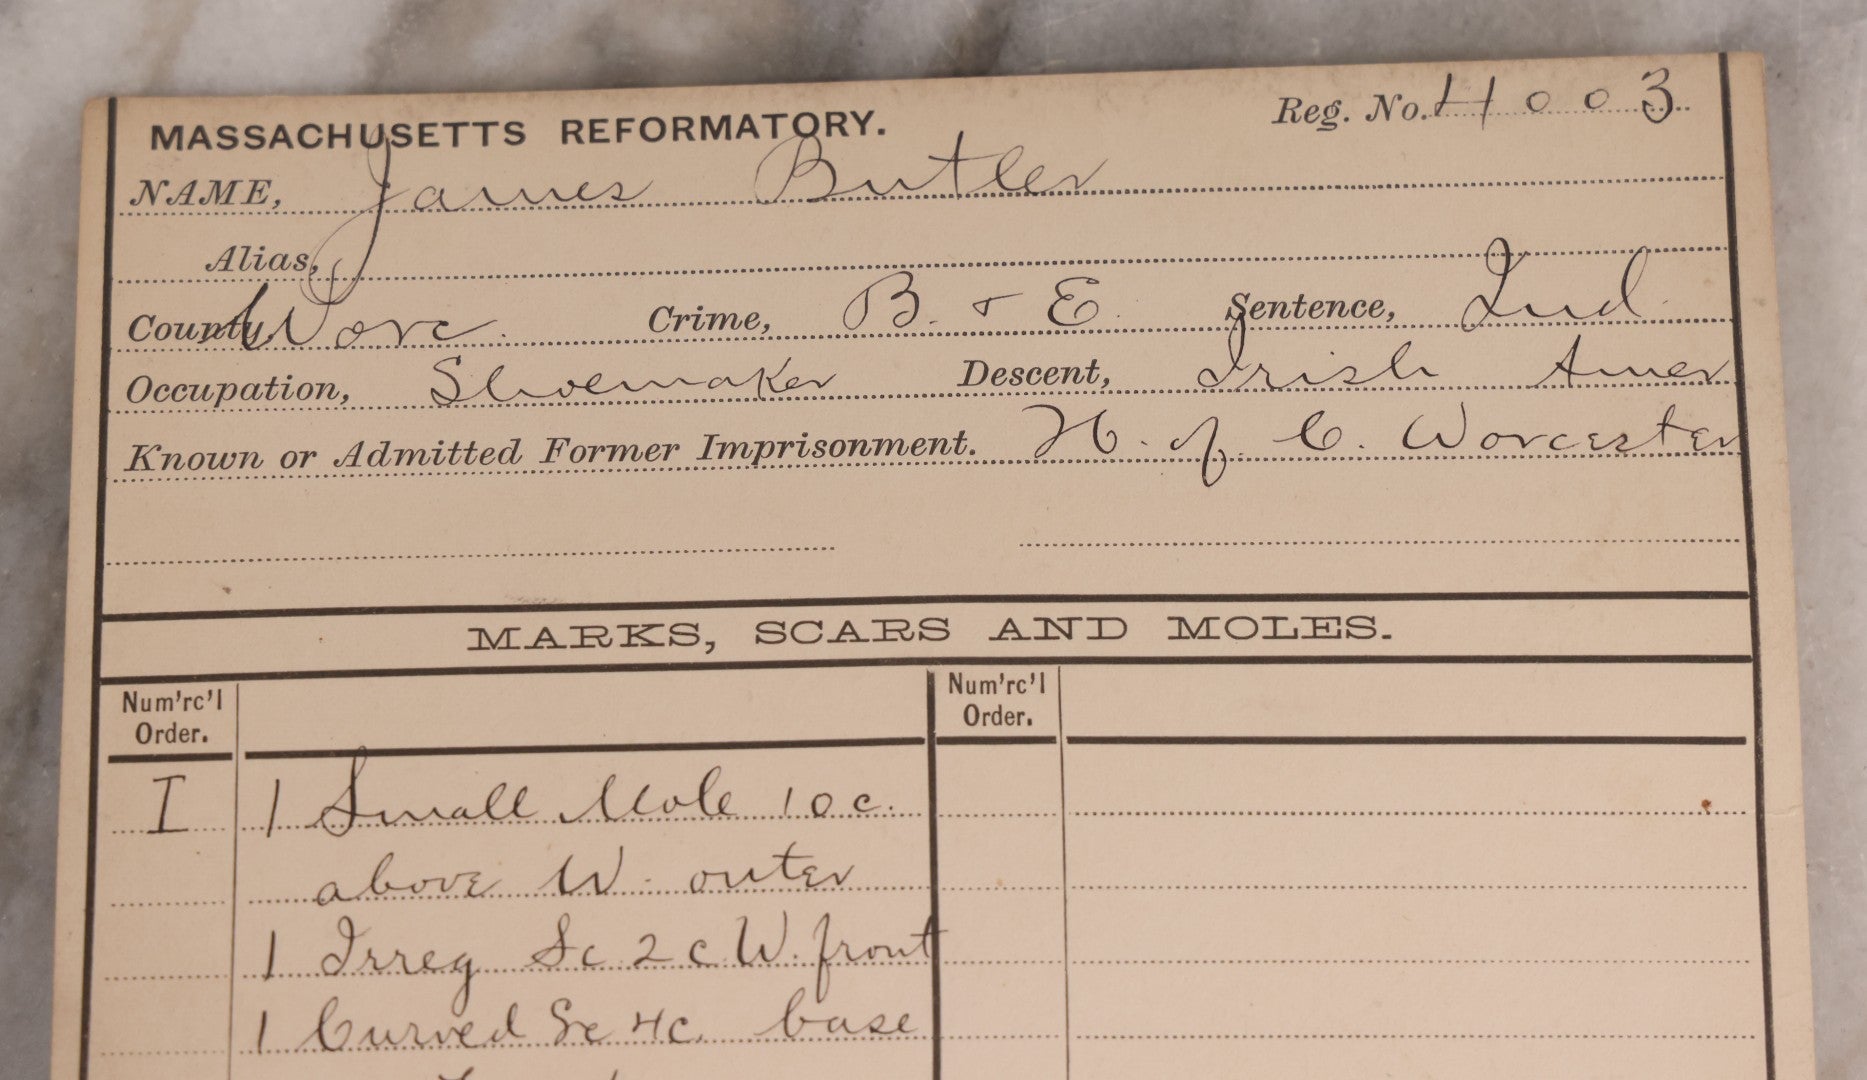 MASSACHUSETTS REFORMATORY. Reg. No. 4003
NAME, James Butler
Alias,
County, Worc. Crime, B. & E. Sentence, Ind.
Occupation, Shoemaker Descent, Irish Amer
Known or Admitted Former Imprisonment. H. of C. Worcester
MARKS, SCARS AND MOLES.
Num'rc'l Order. Num'rc'l Order.
I 1 Small Mole 10c.
above W. outer
1 Irreg Sc 2c W. front
1 Curved Sc 4c. base